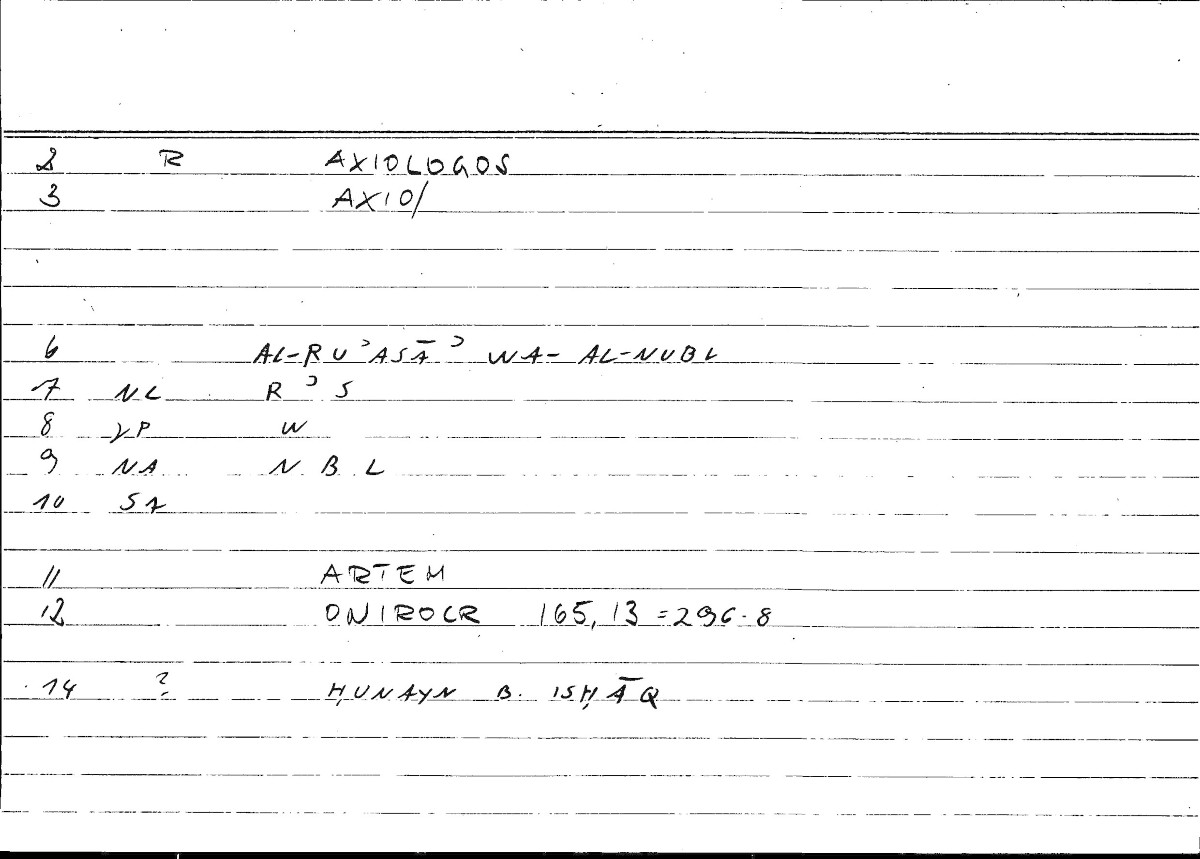 2 R AXIOLOGOS
3 AXIO/
6 AL-RUʾASĀʾ WA-AL-NUBL
7 NL R ʾ S
8 γP W
9 NA N B L
10 SA
11 ARTEM
12 ONIROCR 165, 13 = 296.8
14 ? ḤUNAYN B. ISḤĀQ